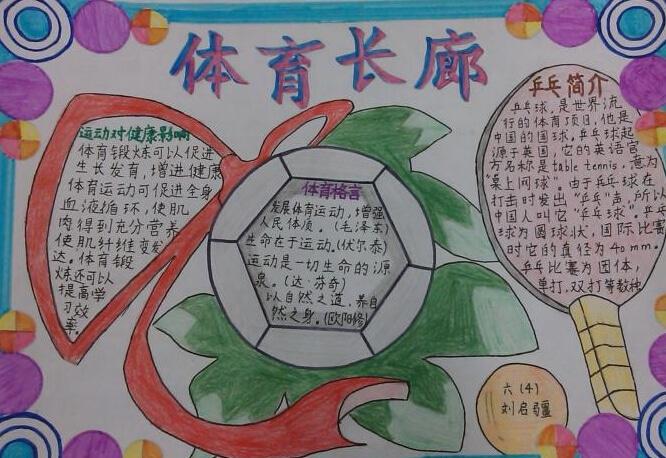 体育长廊
运动对健康影响
体育锻炼可以促进
生长发育,增进健康
体育运动可促进全身
血液循环,使肌
肉得到充分营养
使肌肉纤维变发
达。体育锻
炼还可以
提高学
习效
率。
体育格言
发展体育运动,增强
人民体质。(毛泽东)
生命在于运动.(伏尔泰)
运动是一切生命的源
泉。(达·芬奇)
以自然之道,养自
然之身。(欧阳修)
乒乓简介
乒乓球,是世界流
行的体育项目,他是
中国的国球,乒乓球起
源于英国,它的英语官
方名称是table tennis,意为
"桌上网球"。由于乒乓球在
打击时发出"乒乓"声,所以
中国人叫它"乒乓球"。乒乓
球为圆球状,国际比赛
时它的直径为40mm.
乒乓比赛为团体,
单打,双打等数种
六(4)
刘启疆